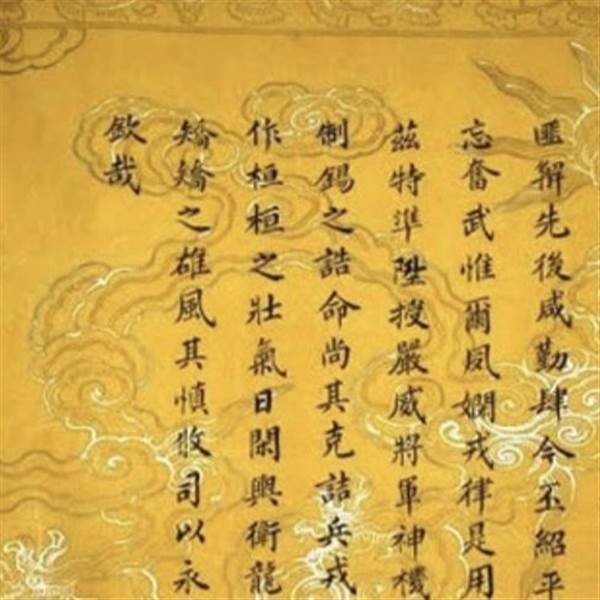 匪觧先後咸勤肆今丕紹平
忘奮武惟爾夙嫻戎律是用
茲特準陞授嚴威將軍神機
制錫之誥命尚其克詰兵戎
作桓桓之壯氣日閑輿衛龍
矯矯之雄風其慎攸司以永
欽哉